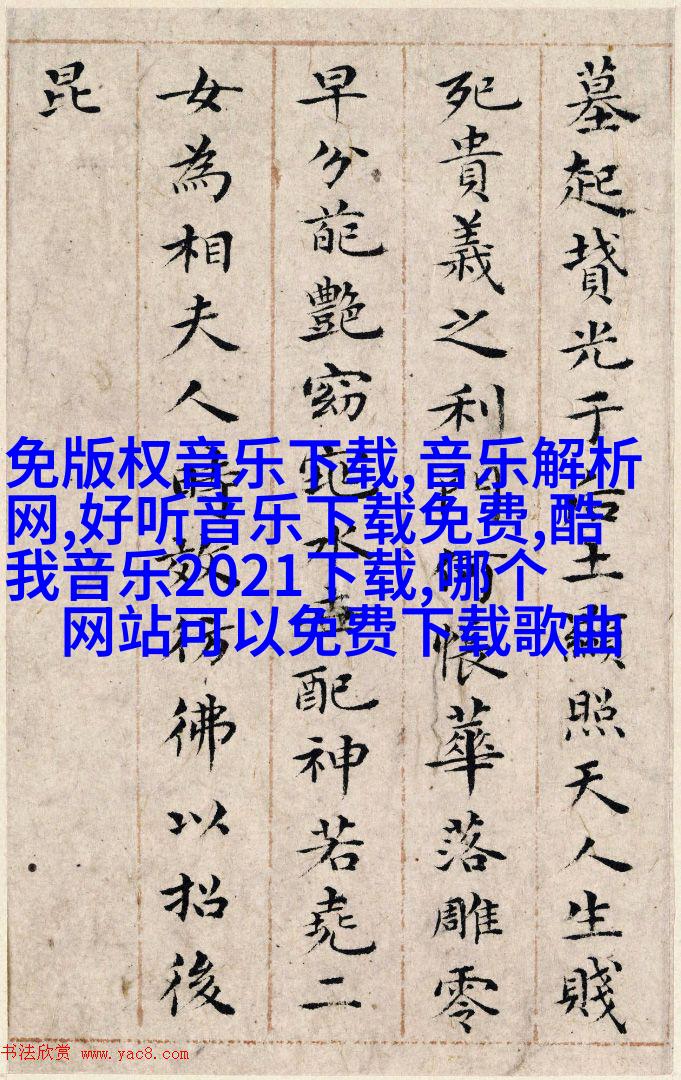 墓起墳光于后土顯照天人生賤
死貴義之利門何悵華落雕零
早分葩豔窈窕永世配神若堯二
女為相夫人時效彷彿以招後
昆
免版权音乐下载,音乐解析
网,好听音乐下载免费,酷
我音乐2021下载,哪个
网站可以免费下载歌曲
书法欣赏 www.yac8.com